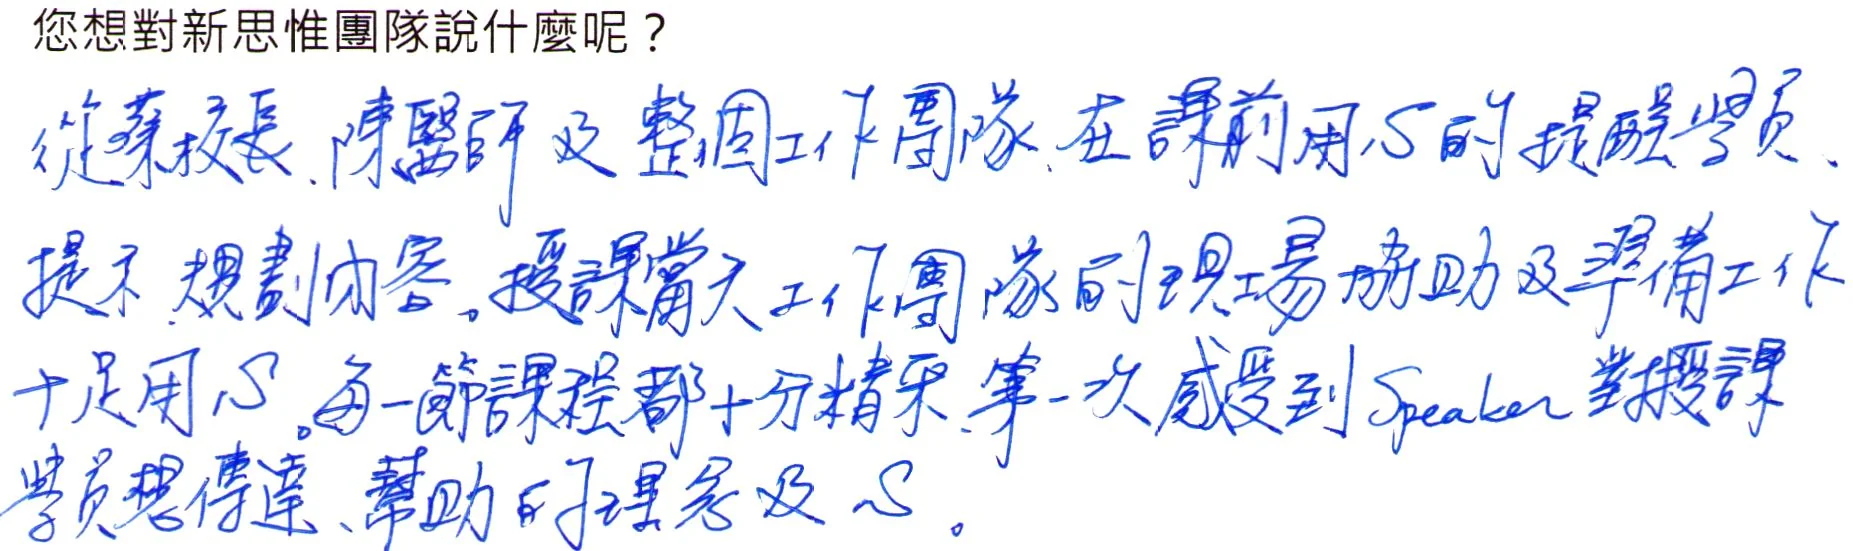 您想對新思惟團隊說什麼呢？
從蔡校長、陳醫師及整個工作團隊、在課前用心的提醒學員、
提示、規劃內容。授課當天工作團隊的現場協助及準備工作
十足用心。每一節課程都十分精采、第一次感受到 Speaker 對授課
學員想傳達、幫助的理念及心。